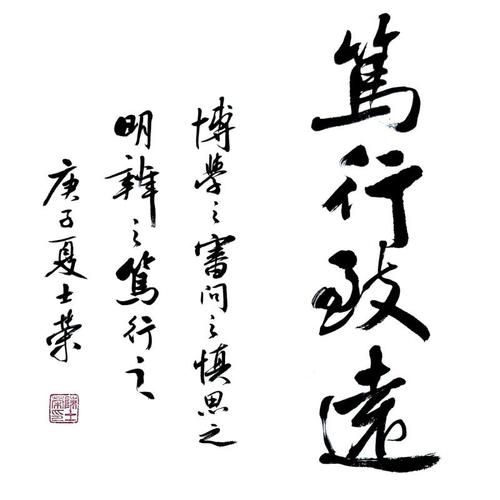 篤行致遠
博學之審問之慎思之
明辨之篤行之
庚子夏士榮